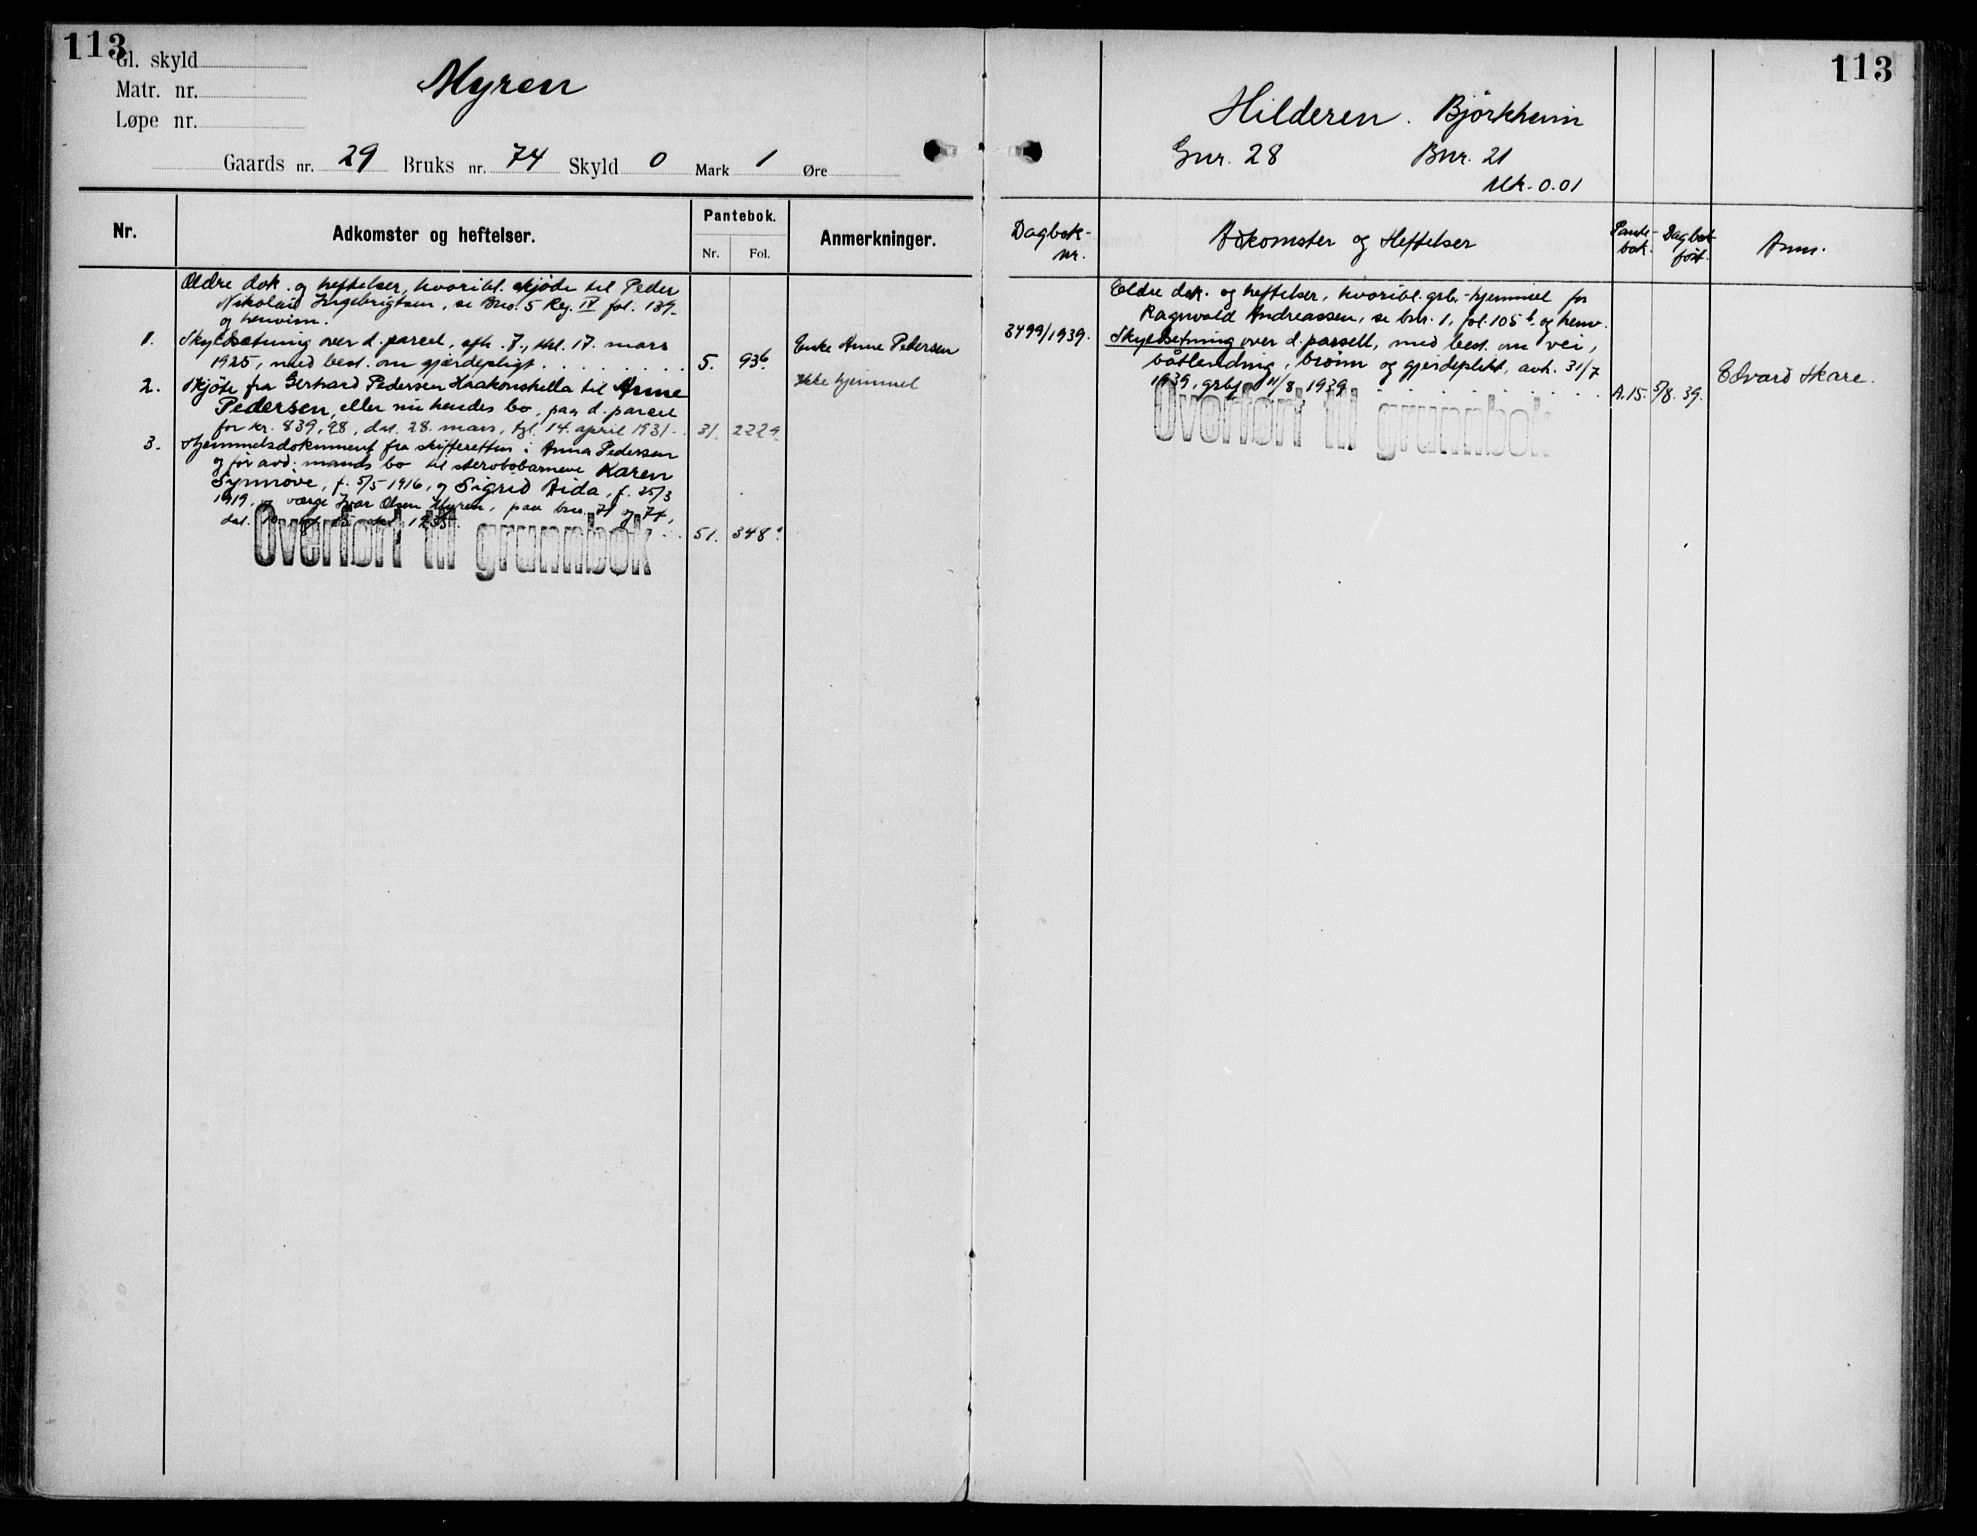 113
Gl. skyld
Matr. nr.
Løpe nr.
Myren
Gaards nr. 29 Bruks nr. 74 Skyld 0 Mark 1 Øre
Nr.
Adkomster og heftelser.
Pantebok.
Nr. Fol.
Anmerkninger.
Ældre dok. og heftelser, hvoribl. skjöde til Peder
Nikolai Ingebrigtsen, se Bno. 5 Reg. IV fol. 139
og henvisn.
1. Skyldsetning over d. parcel, afh. 7., thl. 17. mars
1925, med best. om gjærdepligt 5. 936
Enke Anne Pedersen
Ikke hjemmel
2. Skjöte fra Gerhard Pedersen Haakonshella til Anne
Pedersen, eller nu hendes bo, paa d. parcel
for kr. 839,98, dat. 28. mars, tgl. 14. april 1931 31. 222
3. Hjemmelsdokument fra skifteretten i Anna Pedersen
og før avd. mands bo til barnene Karen
Synnøve, f. 5/5-1916, og Sigrid Aida, f. 25/3
1919, v værge Ivar Olsen Myren, paa bnr. 71 og 74,
dat. 1935. 51. 348
Overført til grunnbok
113
Hilderen. Björkheim
Gnr. 28 Bnr. 21
Mk. 0.01
Dagbok-
nr.
Adkomster og Heftelser
Pante-
bok.
Dagbok
ført.
Anm.
Eldre dok. og heftelser, hvoribl. grb.-hjemmel for
Ragnvald Andreassen, se bnr. 1, fol. 105 b. og henv.
3499/1939. Skyldsetning over d. parsell, med best. om vei,
båtlending, brönn og gjerdeplikt, avh. 31/7
1939, grbf. 11/8 1939 A.15. 5/8. 39.
Edvard Skare.
Overført til grunnbok